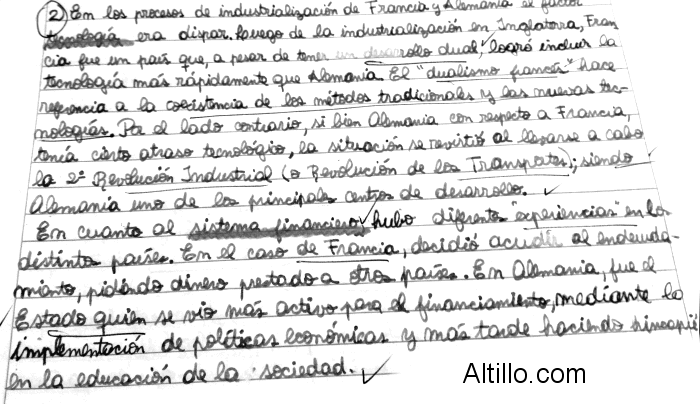 ② Em los procesos de industrialización de Francia y Alemania el factor
tecnología era dispar. Luego de la industrialización en Inglaterra, Fran
cia fue un país que, a pesar de tener un desarrollo dual, logró incluir la
tecnología más rápidamente que Alemania. El "dualismo francés" hace
referencia a la coexistencia de los métodos tradicionales y las nuevas tec-
nologías. Por el lado contrario, si bien Alemania con respecto a Francia,
tenía cierto atraso tecnológico, la situación se revirtió al llevarse a cabo
la 2° Revolución Industrial (o Revolución de los Transportes); siendo
Alemania uno de los principales centros de desarrollo.
En cuanto al sistema financiero hubo diferentes "experiencias" en los
distintos países. En el caso de Francia, decidió acudir al endeuda-
miento, pidiendo dinero prestado a otros países. En Alemania, fue el
Estado quien se vio más activo para el financiamiento, mediante la
implementación de políticas económicas y más tarde haciendo hincapié
en la educación de la sociedad.
Altillo.com